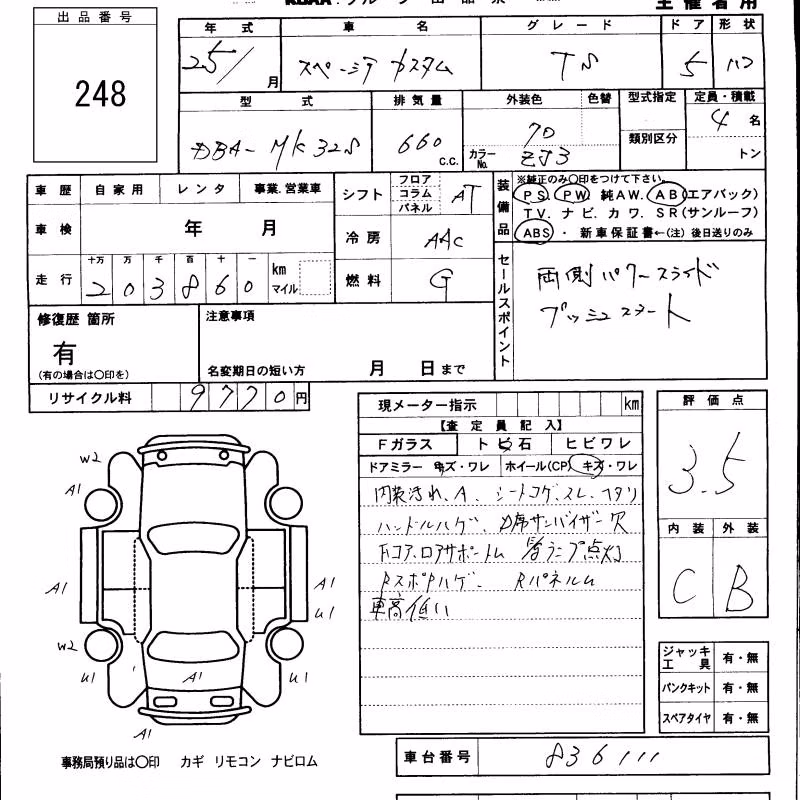 出品番号
248
年式 車名 グレード ドア 形状
25/ 月 スペーシア カスタム TS 5 バン
型式 排気量 外装色 色替 型式指定 定員・積載
DBA-MK32S 660 c.c. 70 類別区分 4 名
カラーNo. ZJ3 トン
車歴 自家用 レンタ 事業.営業車
シフト フロア コラム パネル AT
装備品 ※純正のみ〇印をつけて下さい。
PS. PW. 純AW. AB(エアバック)
TV. ナビ. カワ. SR(サンルーフ)
ABS ・ 新車保証書←(注)後日送りのみ
車検 年 月
冷房 AAC
走行 十万 万 千 百 十 一 km マイル
203860
燃料 G
セールスポイント
両側パワースライド
プッシュスタート
修復歴 箇所
有
(有の場合は〇印を)
注意事項
名変期日の短い方 月 日まで
リサイクル料 9770 円
現メーター指示 km
【査定員記入】
Fガラス トビ石 ヒビワレ
ドアミラー キズ・ワレ ホイール(CP) キズ・ワレ
内装汚れ、A、シートコゲ、スレ、ヘタリ
ハンドルハゲ、D席サンバイザー穴
Fコア、ロアサポートム 警ランプ点灯
RスポPハゲ Rパネルム
車高低い
評価点
3.5
内装 外装
C B
W2
A1
A1
A1
U1
W2
U1
A1
U1
A1
ジャッキ工具 有・無
パンクキット 有・無
スペアタイヤ 有・無
事務局預り品は〇印 カギ リモコン ナビロム
車台番号 836111